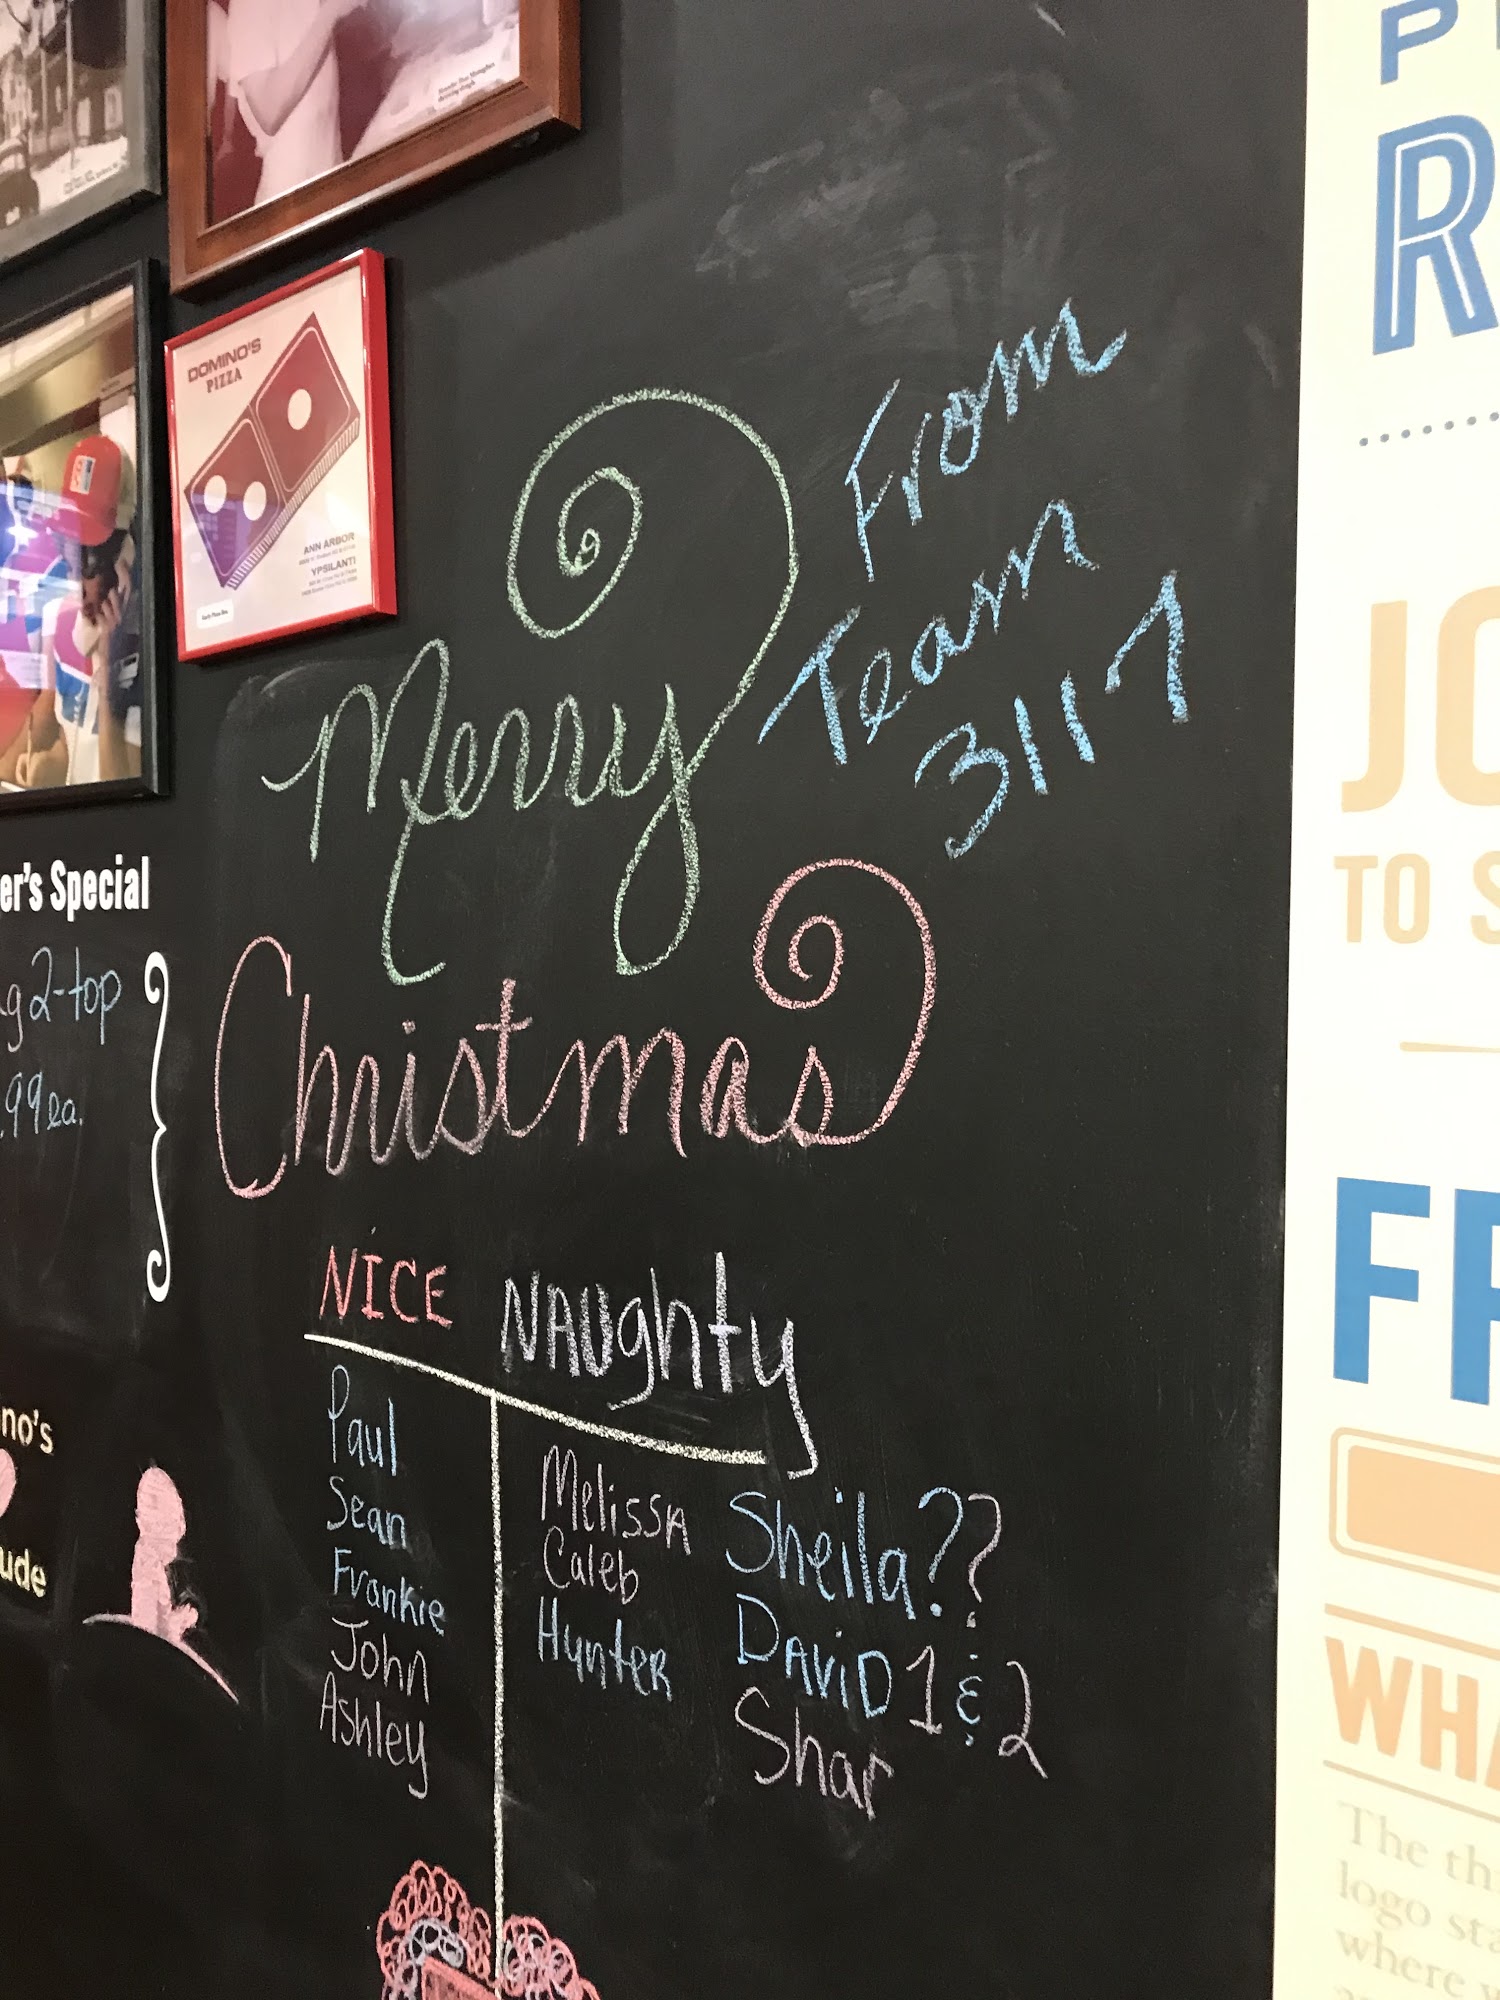 DOMINO'S
PIZZA
ANN ARBOR
YPSILANTI
From
Team
3117
Merry
Christmas
er's Special
g 2-top
.99 ea.
no's
ude
NICE NAUghty
Paul
Sean
Frankie
John
Ashley
MelissA
Caleb
HunteR
Sheila??
DAViD 1 & 2
Shar
P
R
JO
TO S
FR
WHA
The th
logo sta
where w